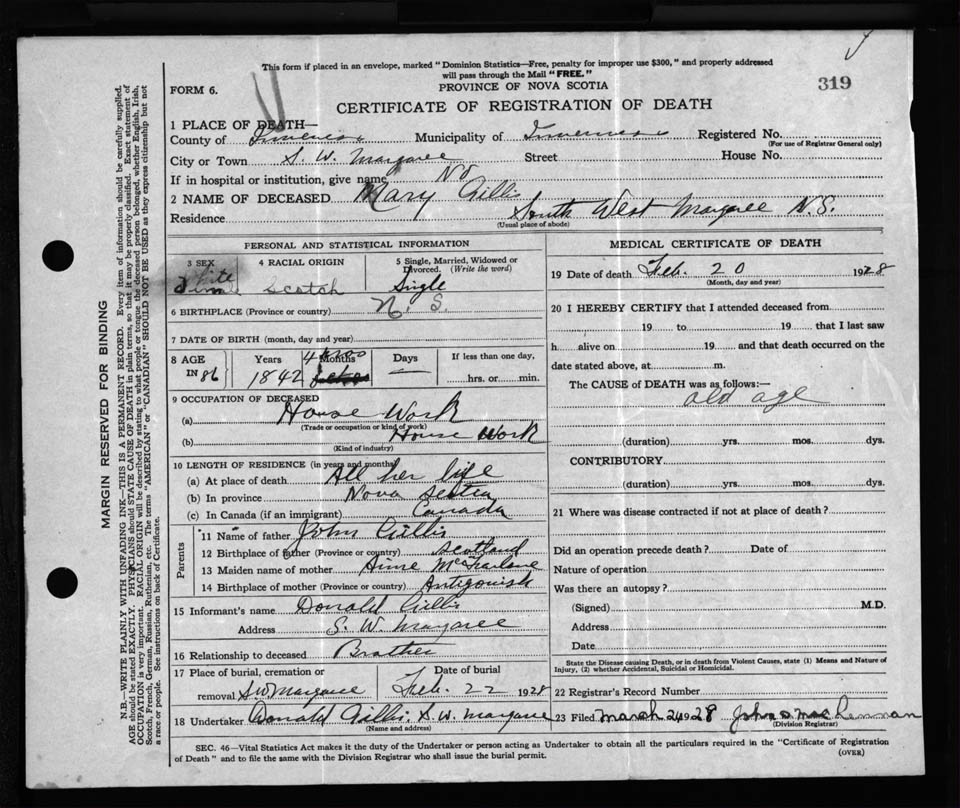 This form if placed in an envelope, marked "Dominion Statistics—Free, penalty for improper use $300," and properly addressed
will pass through the Mail "FREE."
FORM 6.
PROVINCE OF NOVA SCOTIA
319
CERTIFICATE OF REGISTRATION OF DEATH
1 PLACE OF DEATH—
County of Inverness Municipality of Inverness Registered No.
(For use of Registrar General only)
City or Town S. W. Margaree Street House No.
If in hospital or institution, give name No
2 NAME OF DECEASED Mary Gillis
Residence South West Margaree N.S.
(Usual place of abode)
PERSONAL AND STATISTICAL INFORMATION
3 SEX
White
Female
4 RACIAL ORIGIN
Scotch
5 Single, Married, Widowed or Divorced. (Write the word)
Single
6 BIRTHPLACE (Province or country) N. S.
7 DATE OF BIRTH (month, day and year)
8 AGE Years Months Days If less than one day,
IN 86 1842 4 mos hrs. or min.
9 OCCUPATION OF DECEASED
(a) House Work
(Trade or occupation or kind of work)
(b) House Work
(Kind of industry)
10 LENGTH OF RESIDENCE (in years and months)
(a) At place of death All her life
(b) In province Nova Scotia
(c) In Canada (if an immigrant) Canada
Parents
11 Name of father John Gillis
12 Birthplace of father (Province or country) Scotland
13 Maiden name of mother Anne McFarlane
14 Birthplace of mother (Province or country) Antigonish
15 Informant's name Donald Gillis
Address S. W. Margaree
16 Relationship to deceased Brother
17 Place of burial, cremation or removal S W Margaree
Date of burial
Feb. 22 1928
18 Undertaker Donald Gillis, S. W. Margaree
(Name and address)
MEDICAL CERTIFICATE OF DEATH
19 Date of death Feb. 20 1928
(Month, day and year)
20 I HEREBY CERTIFY that I attended deceased from
19 to 19 that I last saw
h alive on 19 and that death occurred on the
date stated above, at m.
The CAUSE of DEATH was as follows:—
old age
(duration) yrs. mos. dys.
CONTRIBUTORY
(duration) yrs. mos. dys.
21 Where was disease contracted if not at place of death?
Did an operation precede death? Date of
Nature of operation
Was there an autopsy?
(Signed) M.D.
Address
Date
State the Disease causing Death, or in death from Violent Causes, state (1) Means and Nature of
Injury, (2) whether Accidental, Suicidal or Homicidal.
22 Registrar's Record Number
23 Filed March 24 1928 John D MacLennan
(Division Registrar)
SEC. 46—Vital Statistics Act makes it the duty of the Undertaker or person acting as Undertaker to obtain all the particulars required in the "Certificate of Registration
of Death" and to file the same with the Division Registrar who shall issue the burial permit.
(OVER)
MARGIN RESERVED FOR BINDING
N.B.—WRITE PLAINLY WITH UNFADING INK—THIS IS A PERMANENT RECORD. Every item of information should be carefully supplied.
AGE should be stated EXACTLY. PHYSICIANS should STATE CAUSE OF DEATH in plain terms, so that it may be properly classified. Exact statement of
OCCUPATION is very important. RACIAL ORIGIN will be described by stating to what people or tongue the deceased person belonged, whether English, Irish,
Scotch, French, German, Russian, Ruthenian, etc. The terms "AMERICAN" or "CANADIAN" SHOULD NOT BE USED as they express citizenship but not
a race or people. See instructions on back of Certificate.